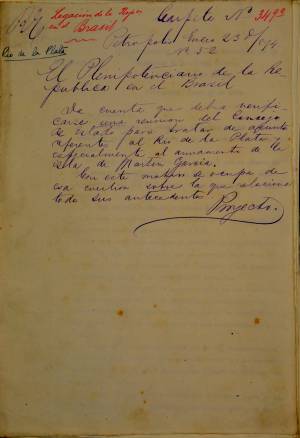 1874 Legación de la Repca
en el Brasil
Carpeta No 3493
Rio de la Plata
Petropolis Enero 23 de 1874
No 52
El Plenipotenciario de la Re-
publica en el Brasil
Da cuenta que debe verifi-
carse una reunion del Consejo
de Estado para tratar de asuntos
referentes al Rio de la Plata y
especialmente al armamento de la
Isla de Martin Garcia.
Con este motivo se ocupa de
esa cuestion sobre la que relaciona
todo sus antecedentes.
Proyecto.